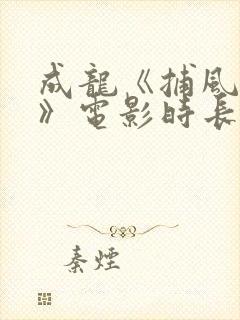 成龍《捕風
》電影時長
秦煙